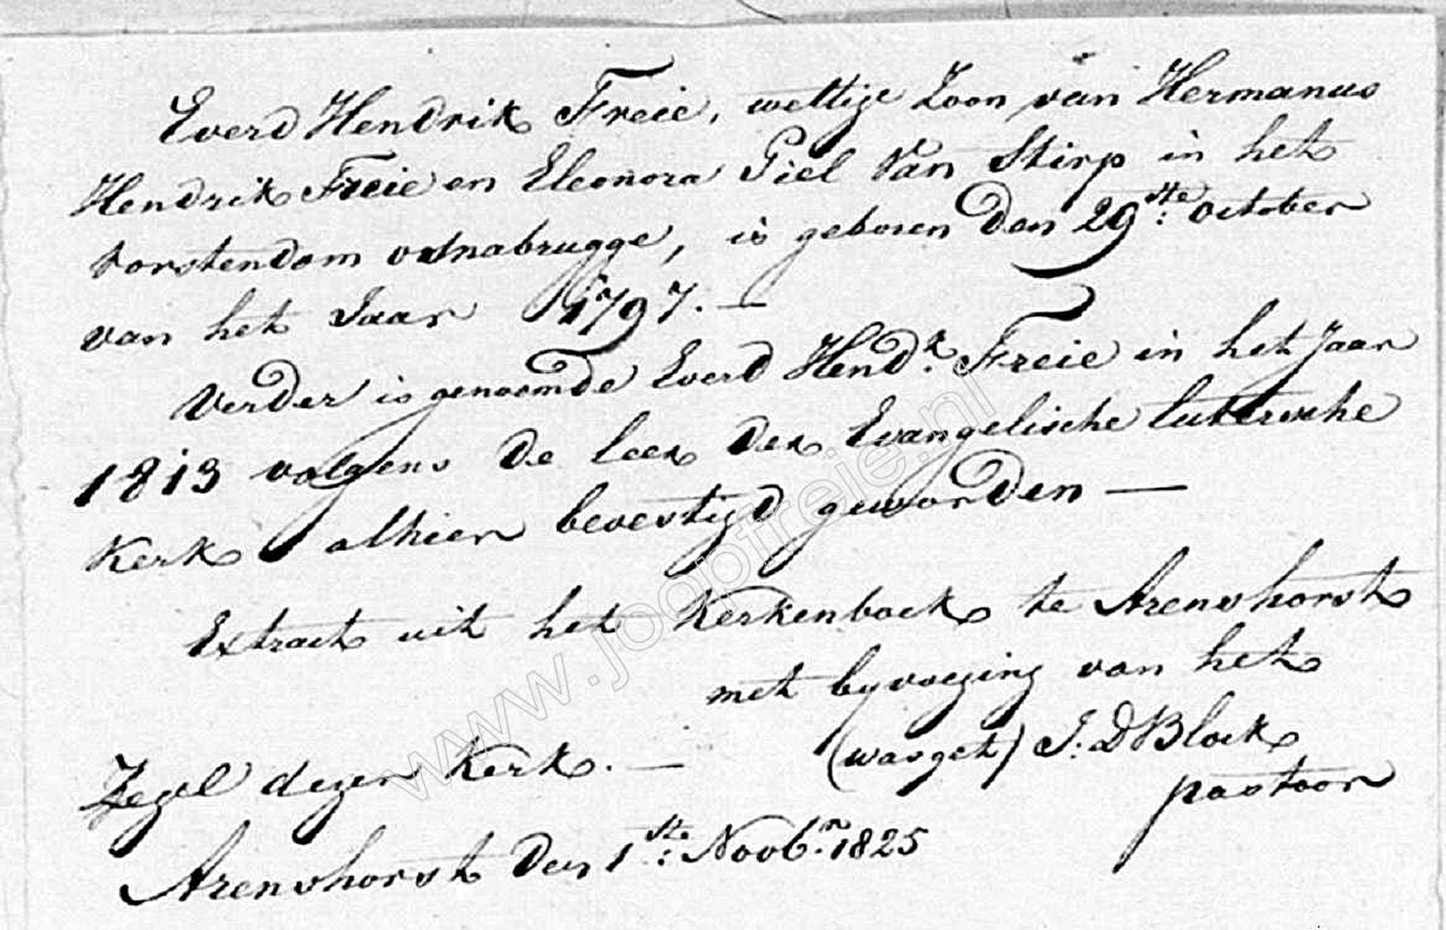 Everd Hendrik Freie, wettige Zoon van Hermanus
Hendrik Freie en Eleonora Piel van Stirp in het
vorstendom osnabrugge, is geboren den 29ste: october
van het Jaar 1797. —
Verder is genoemde Everd Hendk. Freie in het Jaar
1813 volgens de leer der Evangelische luttersche
Kerk alhier bevestigd geworden —
Extract uit het Kerkenboek te Arenshorst
met byvoeging van het
Zegel dezer Kerk. —
(wasget) J: D Block
pastoor
Arenshorst den 1ste: Novbr. 1825
www.joopfreie.nl